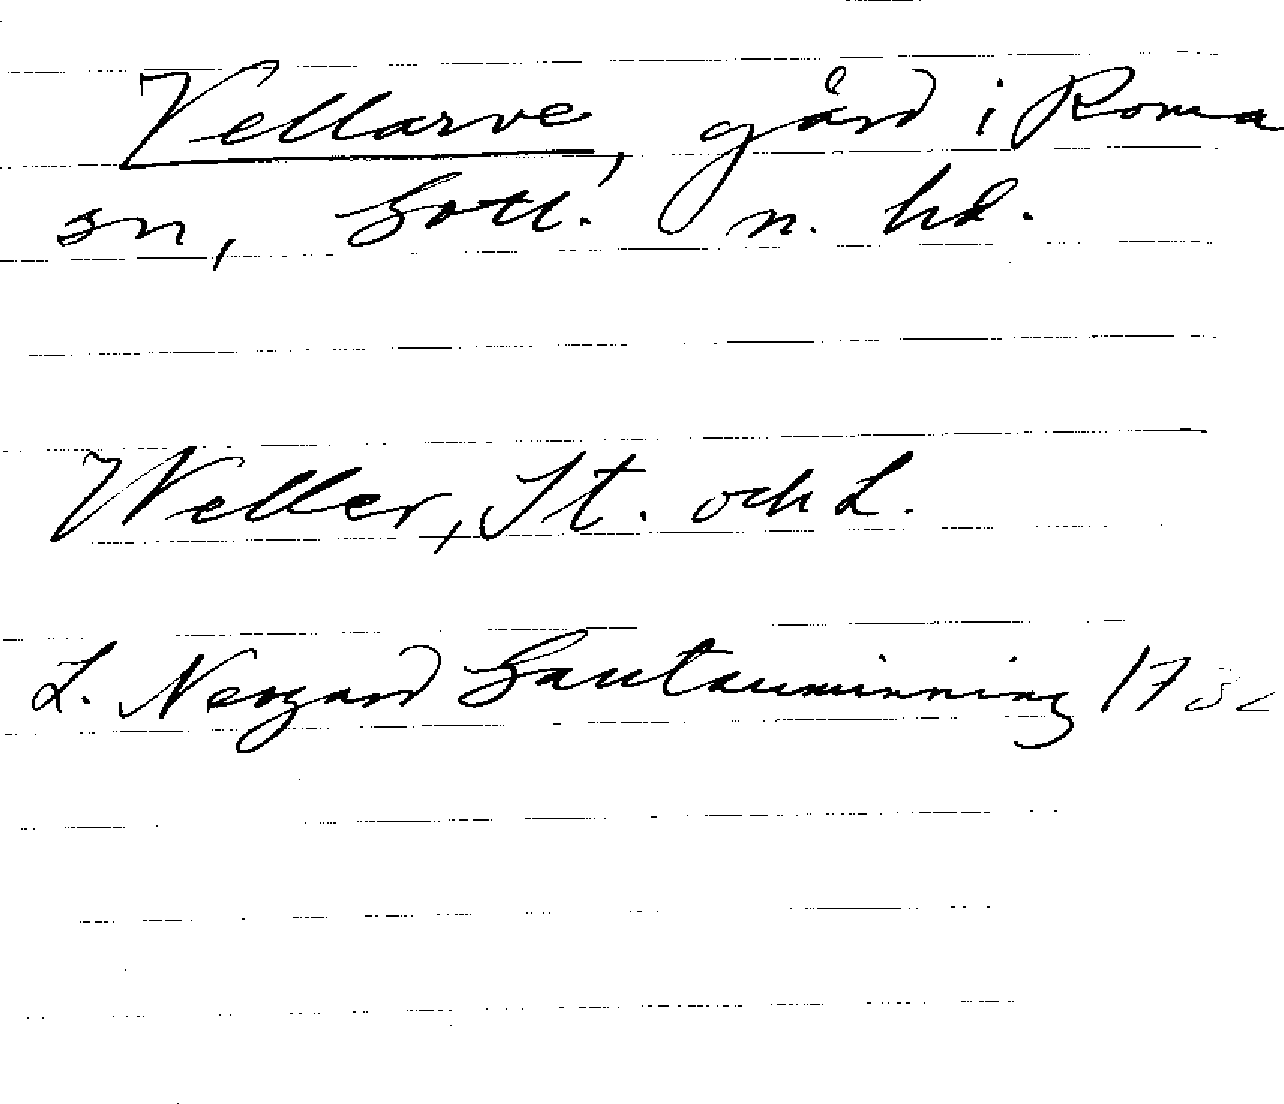 Vellarve, gård i Roma
sn, Gotl. n. hd.
Weller, St. och L.
L. Nergard Gautauminning 17